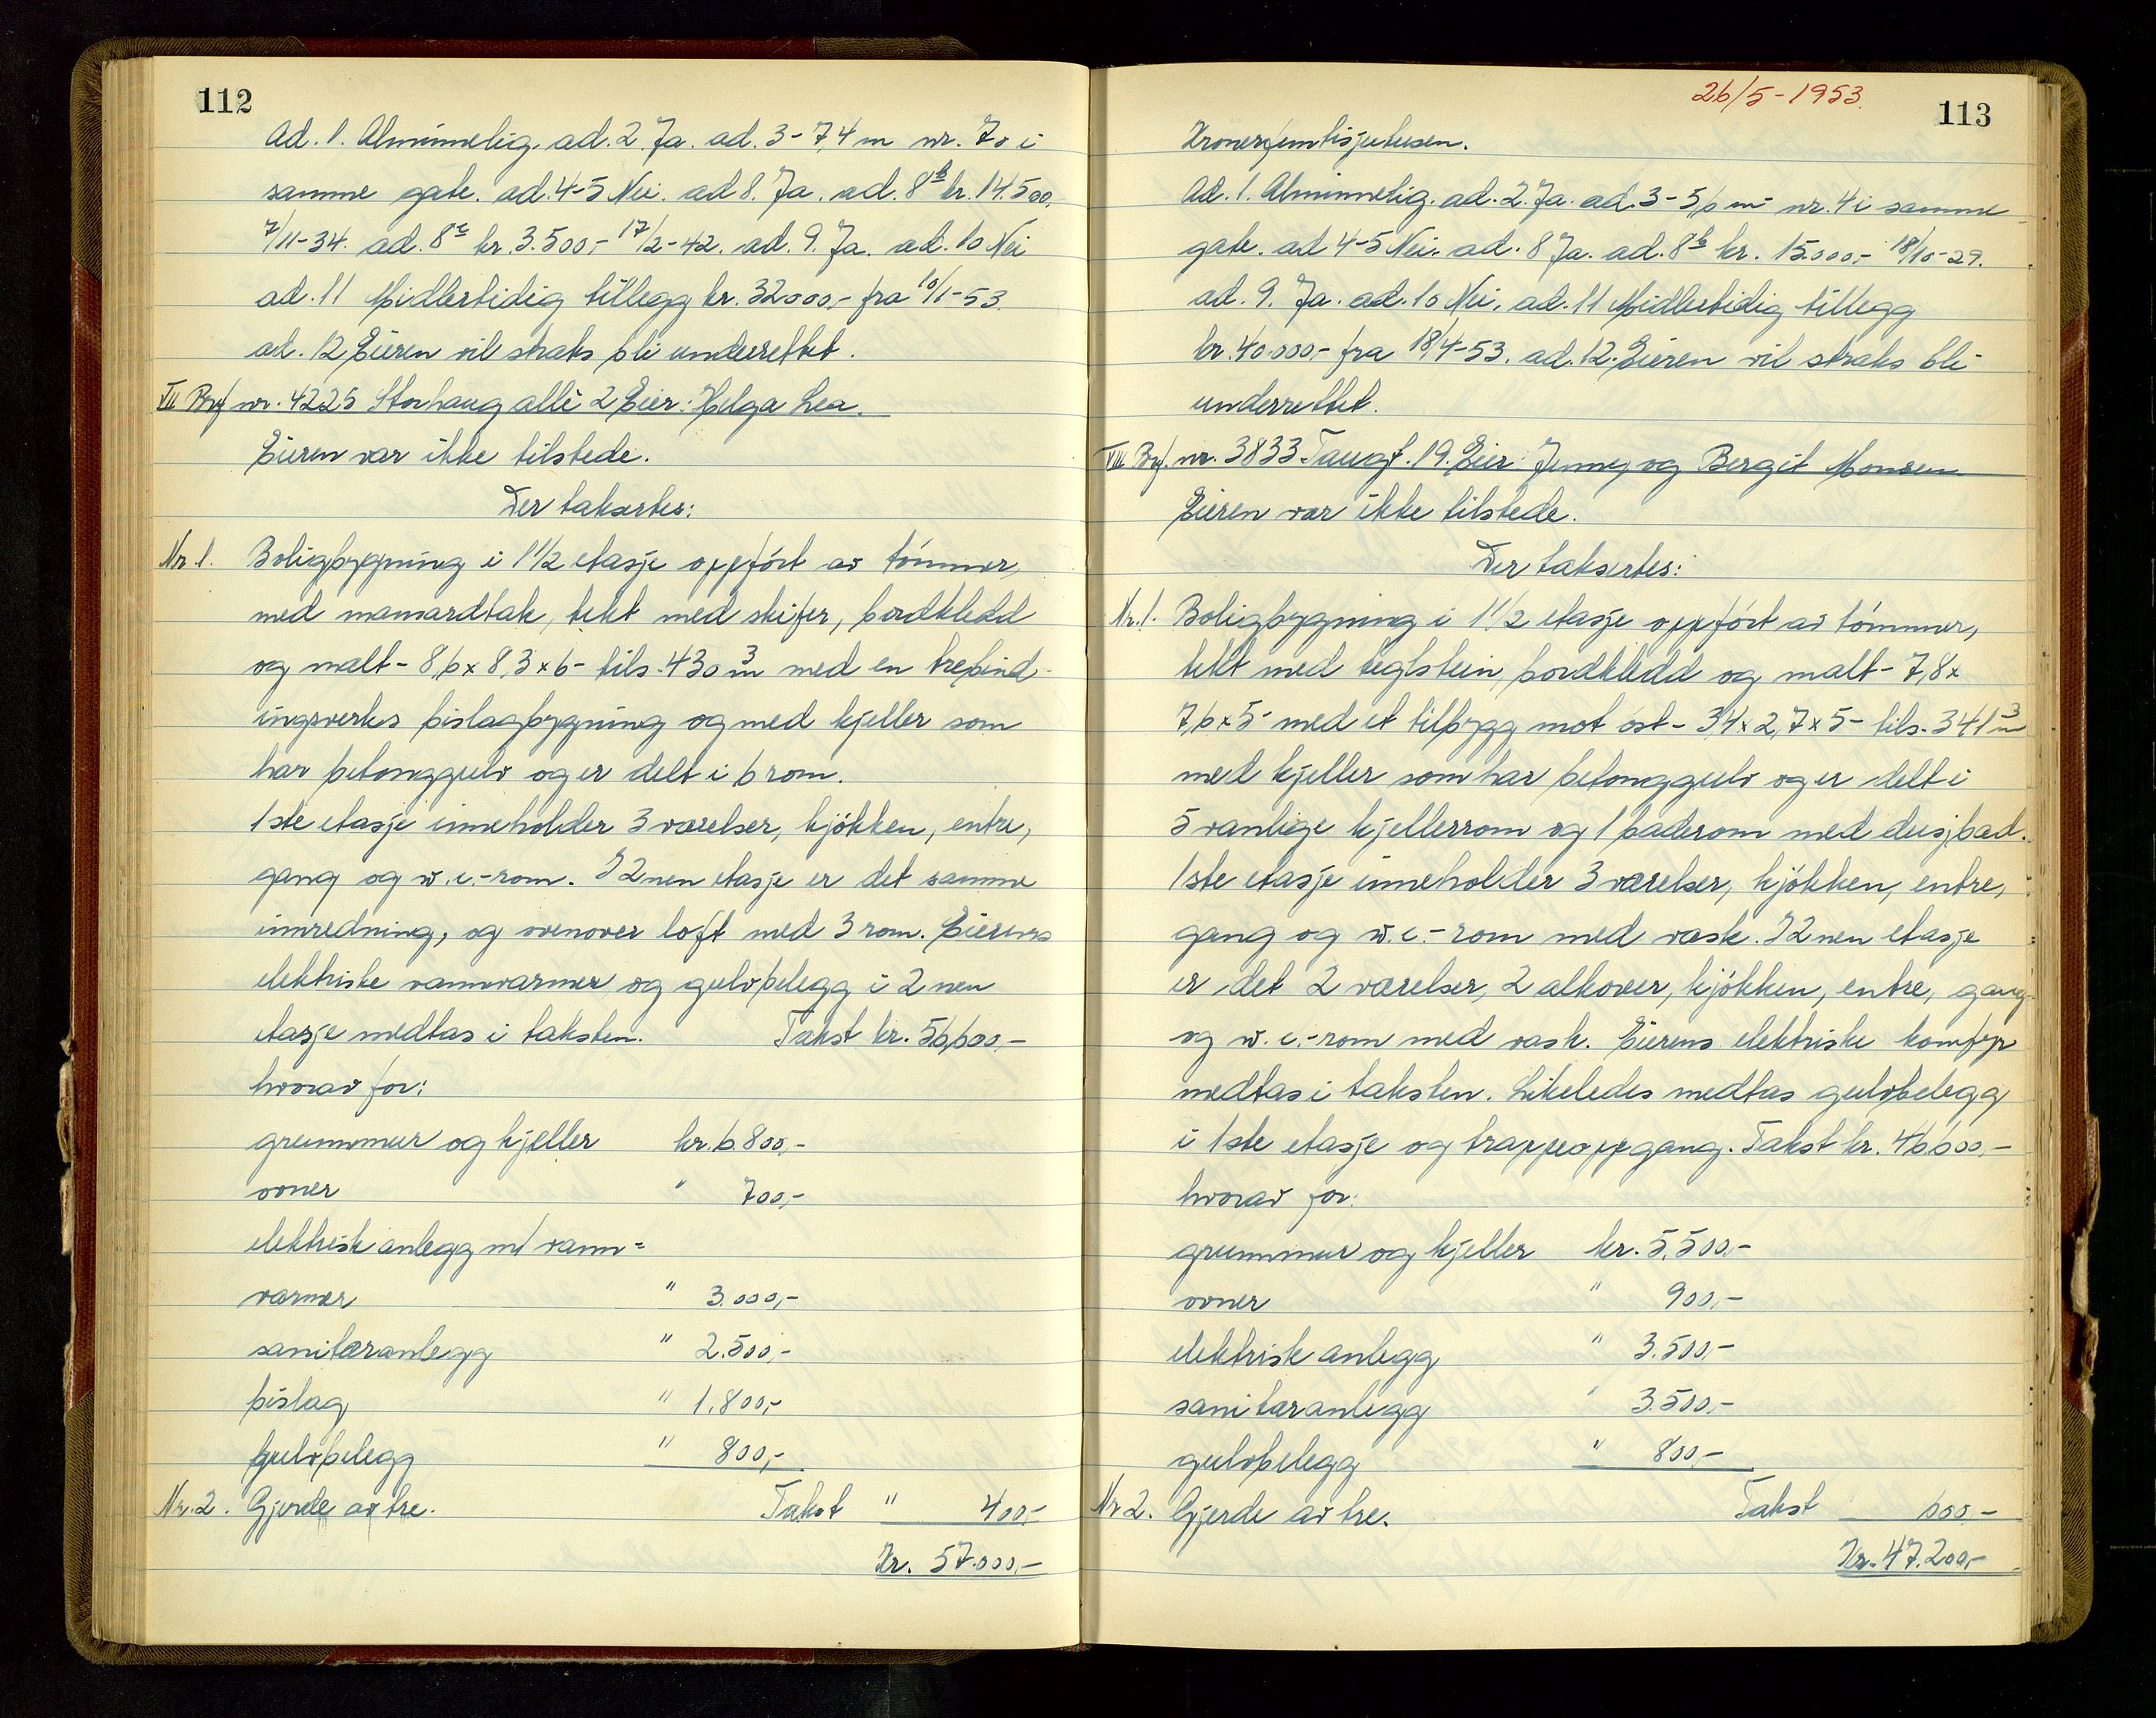 112
Ad. 1. Alminnelig. ad. 2 Ja. ad. 3 - 7,4 m nr. 70 i
samme gate. ad. 4-5 Nei. ad 8. Ja. ad. 8b kr. 14.500,
7/11-34. ad. 8c kr. 3.500,- 17/2-42. ad. 9. Ja. ad. 10 Nei
ad. 11 Midlertidig tillegg kr. 32000,- fra 10/1-53.
ad. 12 Eieren vil straks bli underrettet.
VII Brf nr. 4225 Storhaug allé 2 Eier: Helga Lea.
Eieren var ikke tilstede.
Der taksertes:
Nr. 1. Boligbygning i 1 1/2 etasje oppført av tømmer,
med mansardtak, tekt med skifer, bordkledd
og malt - 8,6 x 8,3 x 6 - tils. 430 m3 med en trebind-
ingsverks bislagbygning og med kjeller som
har betonggulv og er delt i 6 rom.
1ste etasje inneholder 3 værelser, kjøkken, entre,
gang og w.c.-rom. I 2nen etasje er det samme
innredning, og ovenover loft med 3 rom. Eierens
elektriske vannvarmer og gulvbelegg i 2nen
etasje medtas i taksten. Takst kr. 56,600,-
hvorav for:
grunnmur og kjeller kr. 6.800,-
ovner " 700,-
elektrisk anlegg m/ vann=
varmer " 3.000,-
sanitæranlegg " 2.500,-
bislag " 1.800,-
gulvbelegg " 800,-
Nr. 2. Gjerde av tre. Takst " 400,-
Kr. 57.000,-
26/5-1953.
113
Kronerfemtisjutusen.
Ad. 1. Alminnelig. ad. 2. Ja. ad. 3 - 5,6 m nr. 4 i samme
gate. ad 4-5 Nei. ad. 8 Ja. ad. 8b kr. 15.000,- 18/10-29.
ad. 9. Ja. ad. 10 Nei. ad. 11 Midlertidig tillegg
kr. 40.000,- fra 18/4-53. ad. 12. Eieren vil straks bli
underrettet.
VIII Brf. nr. 3833 Taugt. 19. Eier: Jenny og Bergit Monsen
Eieren var ikke tilstede.
Der taksertes:
Nr. 1. Boligbygning i 1 1/2 etasje oppført av tømmer,
tekt med teglstein, bordkledd og malt - 7,8 x
7,6 x 5 - med et tilbygg mot øst - 3,4 x 2,7 x 5 - tils. 341 m3
med kjeller som har betonggulv og er delt i
5 vanlige kjellerrom og 1 baderom med dusjbad.
1ste etasje inneholder 3 værelser, kjøkken, entre,
gang og w.c.-rom med vask. I 2nen etasje
er det 2 værelser, 2 alkover, kjøkken, entre, gang
og w.c.-rom med vask. Eierens elektriske komfyr
medtas i taksten. Likeledes medtas gulvbelegg
i 1ste etasje og trappeoppgang. Takst kr. 46,600,-
hvorav for:
grunnmur og kjeller kr. 5.500,-
ovner " 900,-
elektrisk anlegg " 3.500,-
sanitæranlegg " 3.500,-
gulvbelegg " 800,-
Nr 2. Gjerde av tre. Takst 600,-
Kr. 47.200,-